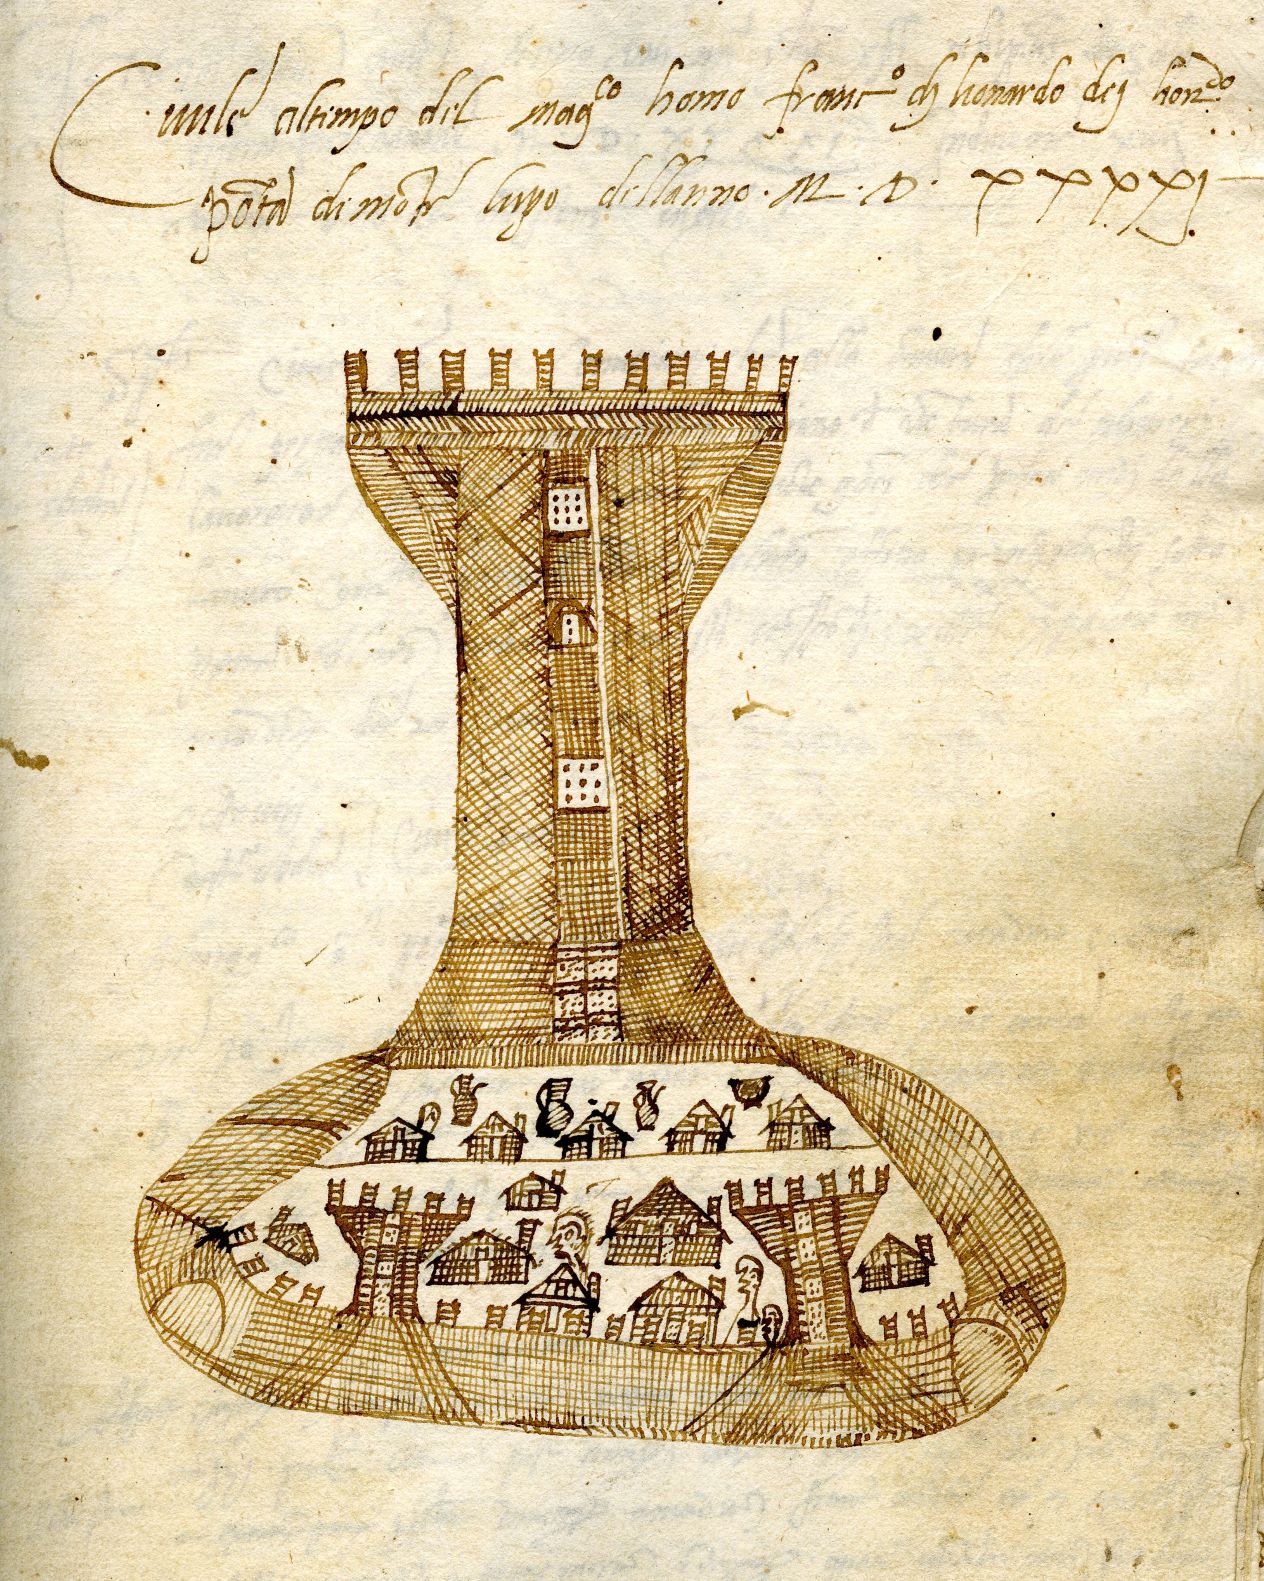 Ciuile altempo del mag.co homo franc.o dj lionardo dej
pota di mote lupo dellanno · M · D · XXXXI